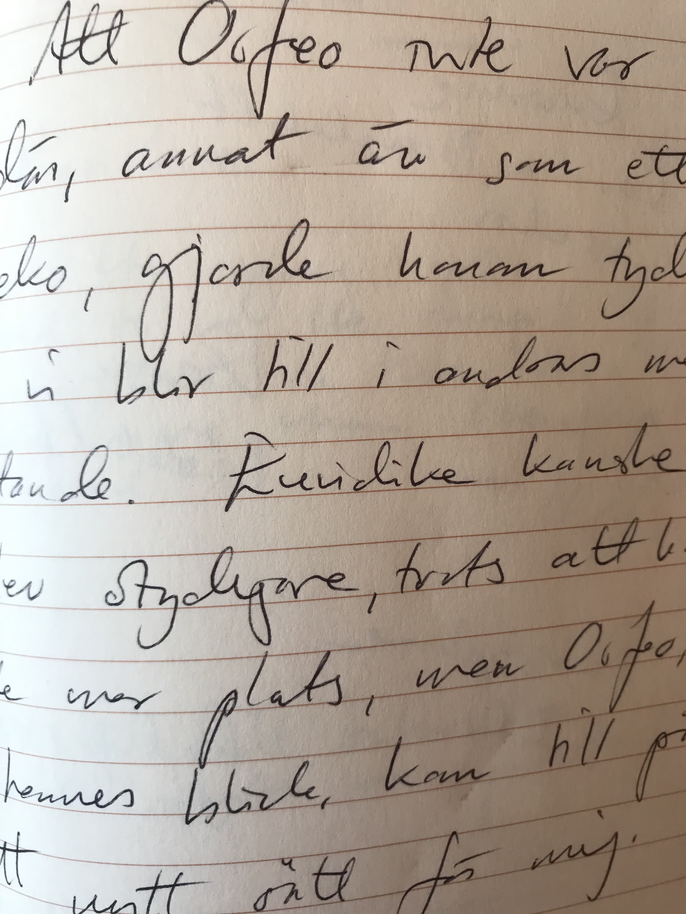 Att Orfeo inte var
där, annat än som ett
eko, gjorde honom tyd
vi blir till i andras me
tande. Euridike kanske
ev otydligare, trots att h
e mer plats, men Orfeo,
hennes blick, kom till på
tt nytt sätt för mig.